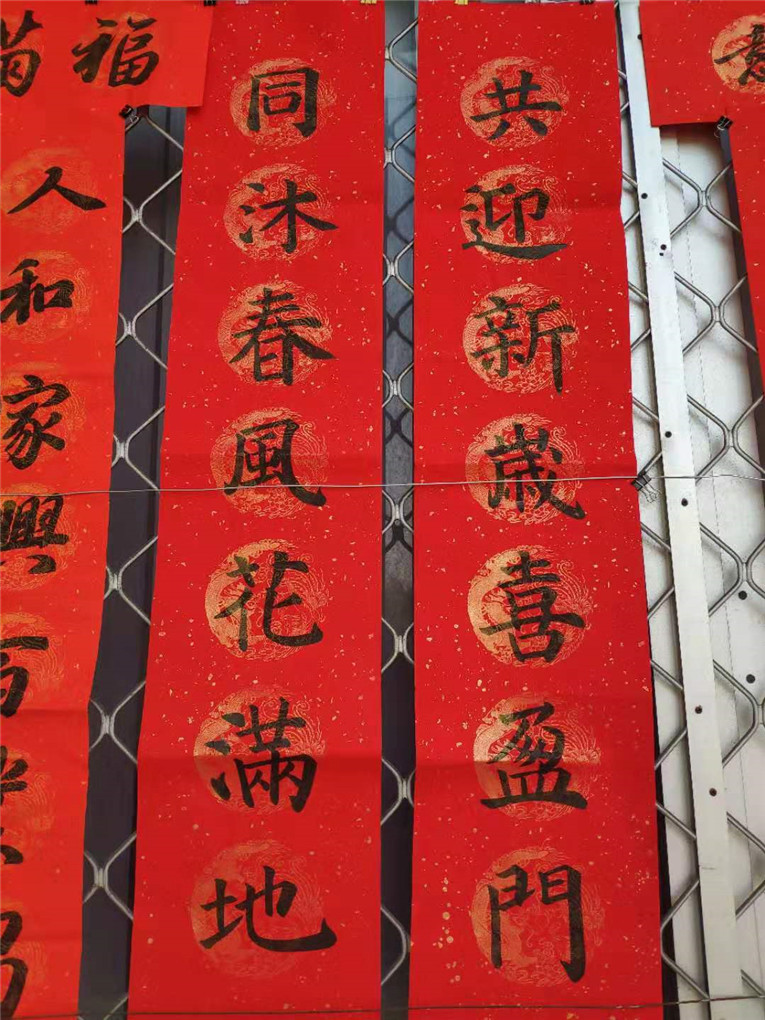 共迎新歲喜盈門
同沐春風花滿地
滿福
人和家興百